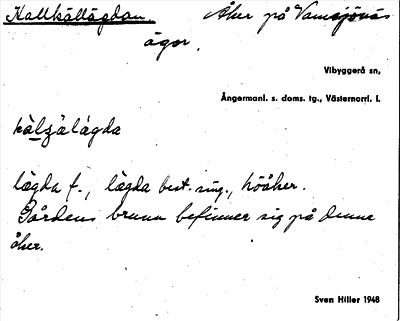 Kallkällägdan. Åker på Vamsjönäs
ägor.
Vibyggerå sn,
Ångermanl. s. doms. tg., Västernorrl. l.
kàlʒàlàgda
lägda f., lägda best. sing., höåker.
Gårdens brunn befinner sig på denna
åker.
Sven Hiller 1948